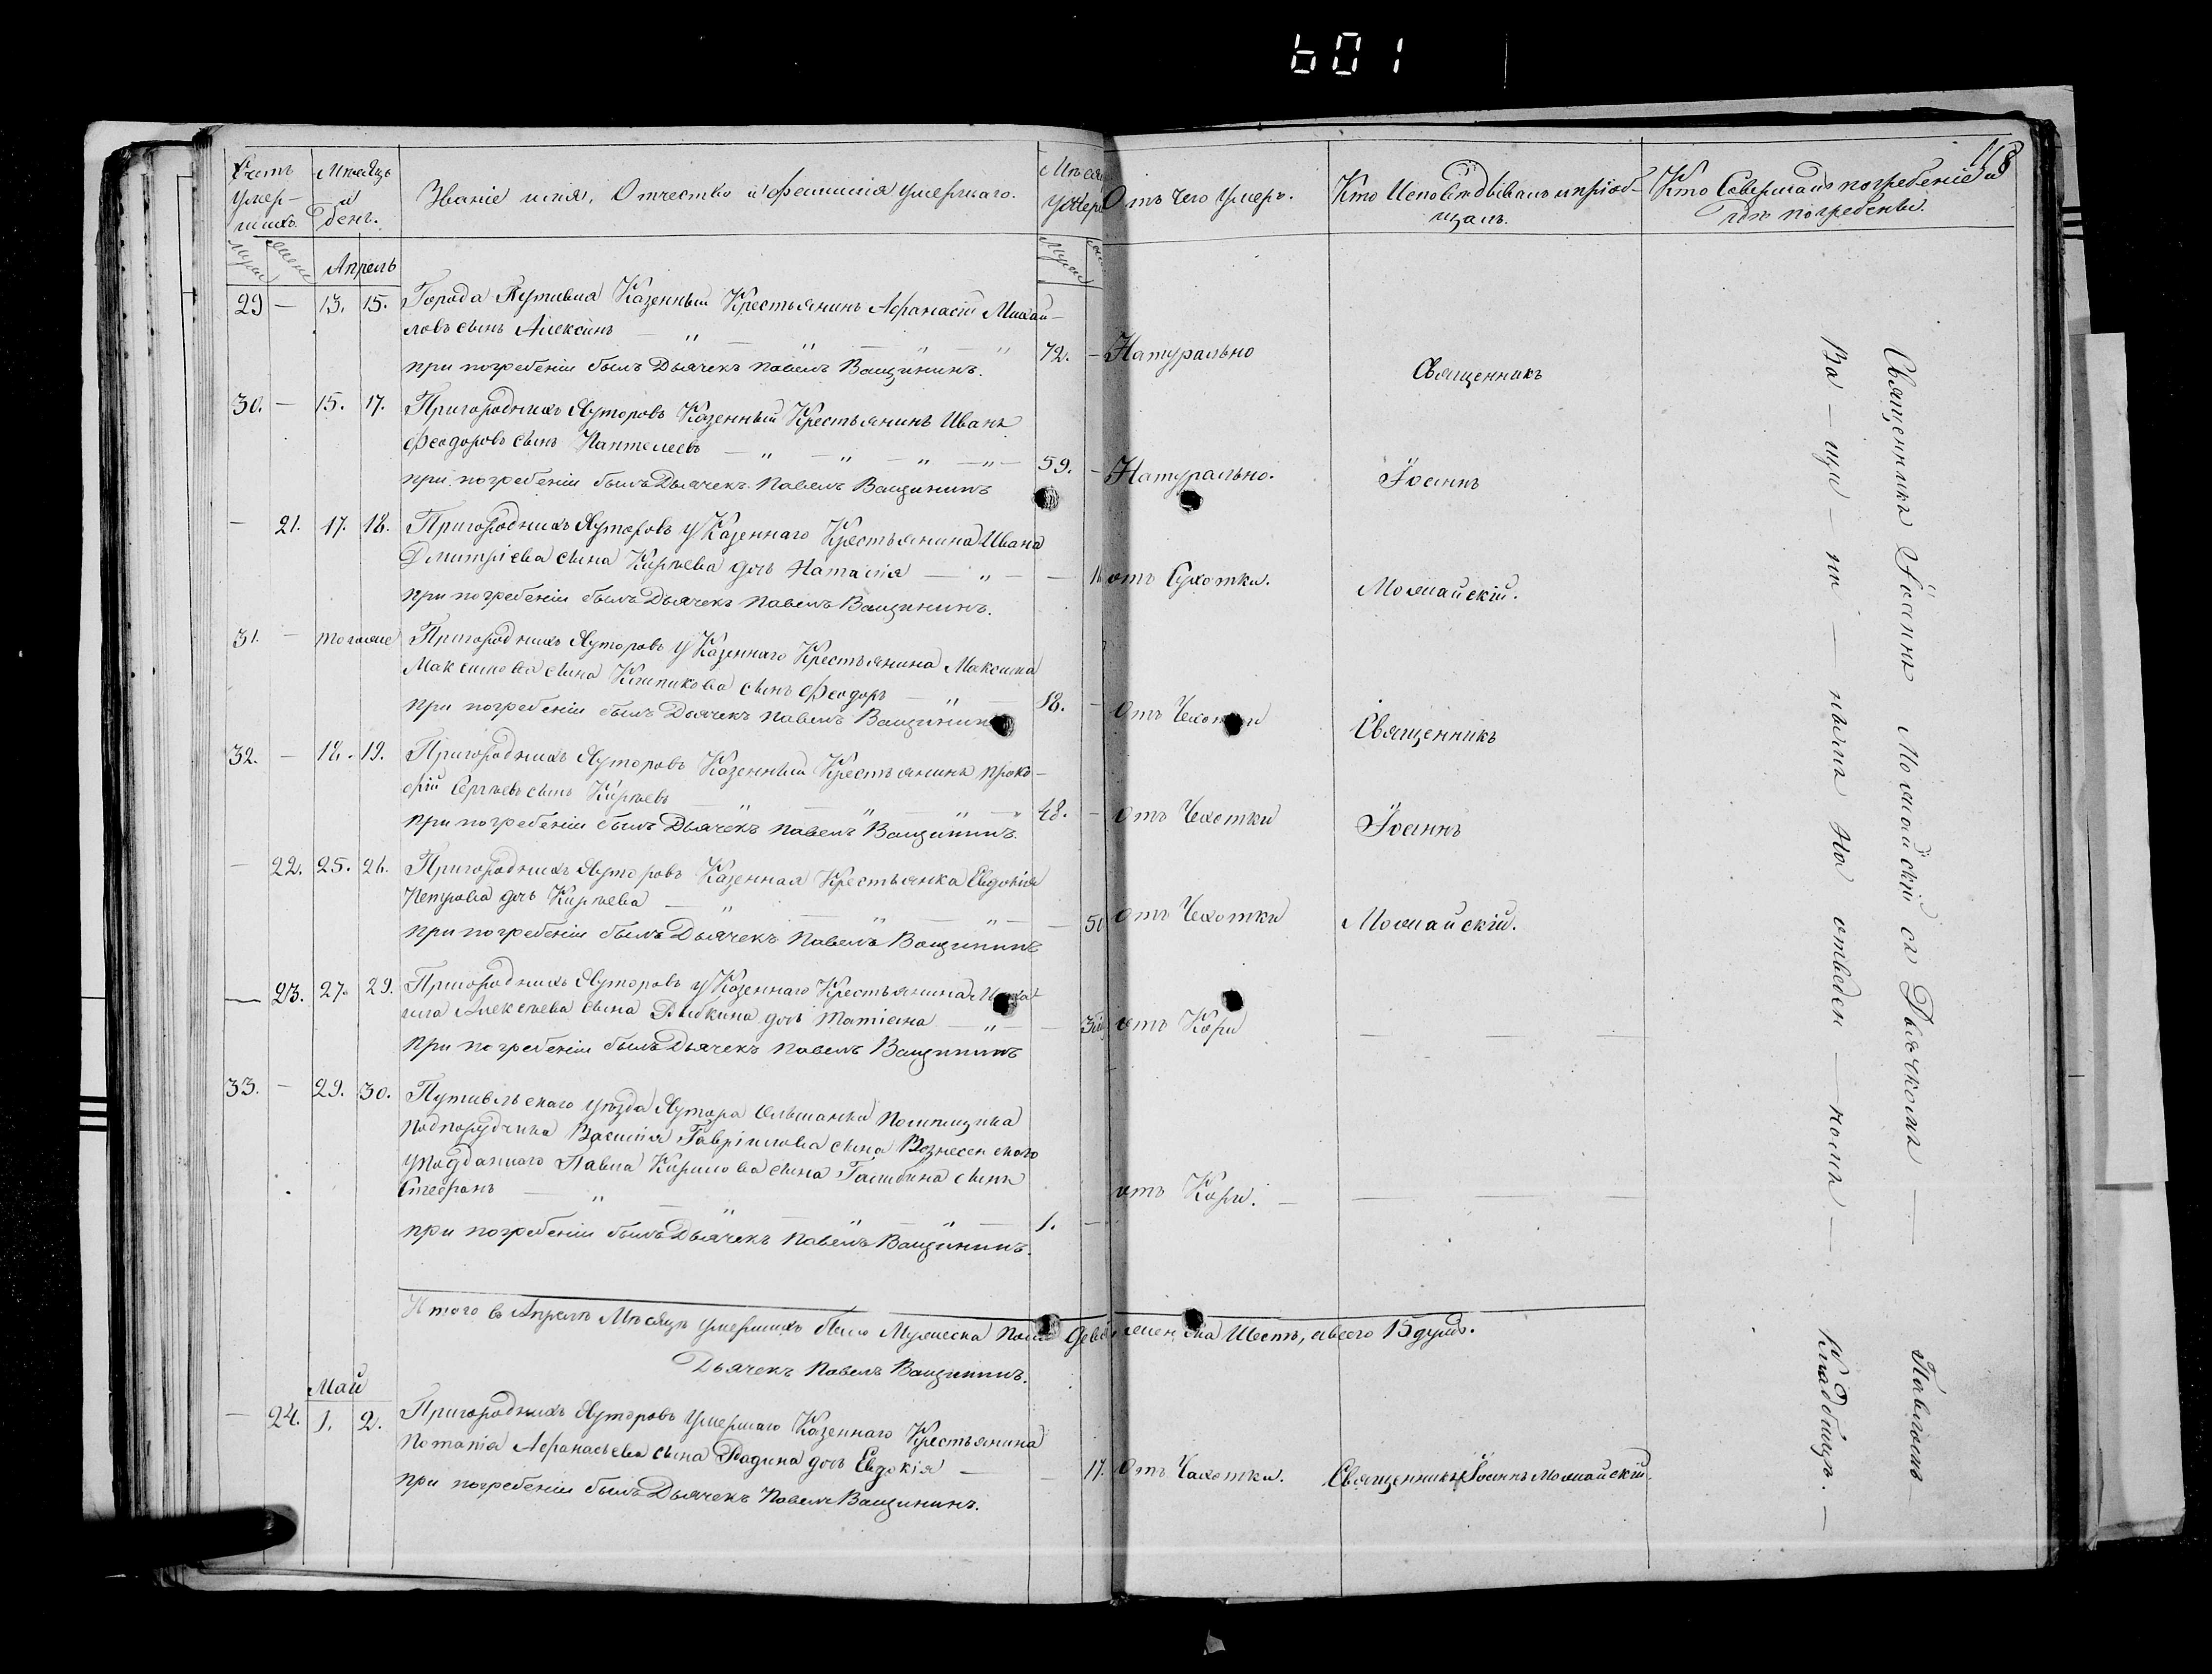 601
118
Счетъ умер-шихъ.
Мѣсяцъ и день.
Званіе имя, Отчество и фамилія умершаго.
Отъ чего умеръ.
Кто Исповѣдывалъ и пріоб-
щалъ.
Кто Совершалъ погребеніе и
гдѣ погребены.
Апрель
29 — 13. 15. Города Путивля Казенный Крестьянинъ Афанасій Михай-
ловъ сынъ Алексинъ — „ — „ — „ — „
72. — Натурально
Священникъ
при погребеніи былъ Дьячекъ Павелъ Ващининъ.
30. — 15. 17. Пригороднихъ Хуторовъ Казенный Крестьянинъ Иванъ
Феодоровъ сынъ Пантелеевъ — „ — „ — „ — „ —
59. — Натурально.
Іоаннъ
при погребеніи былъ Дьячекъ Павелъ Ващининъ
— 21. 17. 18. Пригороднихъ Хуторовъ у Казеннаго Крестьянина Ивана
Дмитріева сына Кирѣева дочь Наталія — „ — —
отъ Сухотки.
Можайскій.
при погребеніи былъ Дьячекъ Павелъ Ващининъ.
31. — тогоже Пригороднихъ Хуторовъ у Казеннаго Крестьянина Максима
Максимова сына сынъ Феодоръ — „ —
18. — отъ Чахотки
Священникъ
при погребеніи былъ Дьячекъ Павелъ Ващининъ
32. — 18. 19. Пригороднихъ Хуторовъ Казенный Крестьянинъ Проко-
фій Сергѣевъ сынъ Кирѣевъ — „ — „ — „ — „
48. — отъ Чахотки
Іоаннъ
при погребеніи былъ Дьячекъ Павелъ Ващининъ.
— 22. 25. 26. Пригороднихъ Хуторовъ Казенная Крестьянка Евдокія
Петрова дочь Кирѣева — „ — „ — „ —
— отъ Чахотки
Можайскій.
при погребеніи былъ Дьячекъ Павелъ Ващининъ
— 23. 27. 29. Пригороднихъ Хуторовъ у Казеннаго Крестьянина
Алексѣева сына дочь Татіана — „ — —
отъ Кори — —
при погребеніи былъ Дьячекъ Павелъ Ващининъ
33. — 29. 30. Путивльскаго уѣзда Хутора Ольшанки Помѣщика
Подпоручика Василія Гавріилова сына Вознесенскаго
у Подданнаго Павла Кирилова сына сынъ
Стефанъ — „ — „ — „ — „ —
1. — отъ Кори. — — —
при погребеніи былъ Дьячекъ Павелъ Ващининъ.
Итого в Апрелѣ Мѣсяцѣ умершихъ было Мужеска Пола женска Шесть, а всего 15 душъ.
Дьячекъ Павелъ Ващининъ.
Май
— 24. 1. 2. Пригороднихъ Хуторовъ умершаго Казеннаго Крестьянина
Потапія Афанасьева сына Радина дочь Евдокія —
— 17. отъ Чахотки. Священникъ Іоаннъ Можайскій.
при погребеніи былъ Дьячекъ Павелъ Ващининъ.
Священникъ Іоаннъ Можайскій съ Дьячкомъ — Павломъ
Ва — щи — ни — нымъ На отведен — номъ — Кладбищѣ. —